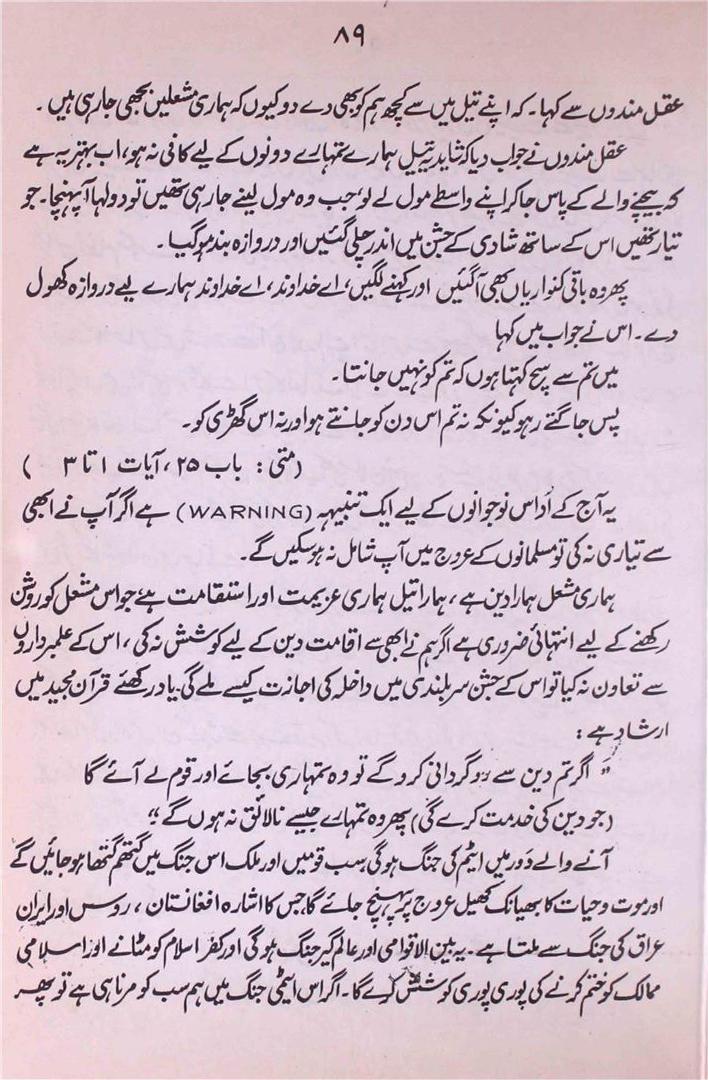 ۸۹
عقل مندوں سے کہا۔ کہ اپنے تیل میں سے کچھ ہم کو بھی دے دو کیوں کہ ہماری مشعلیں بجھی جا رہی ہیں۔
عقل مندوں نے جواب دیا کہ شاید یہ تیل ہمارے تمہارے دونوں کے لیے کافی نہ ہو، اب بہتر یہ ہے
کہ بیچنے والے کے پاس جا کر اپنے واسطے مول لے لو، جب وہ مول لینے جا رہی تھیں تو دولہا آ پہنچا۔ جو
تیار تھیں اس کے ساتھ شادی کے جشن میں اندر چلی گئیں اور دروازہ بند ہو گیا۔
پھر وہ باقی کنواریاں بھی آ گئیں اور کہنے لگیں، اے خداوند، اے خداوند ہمارے لیے دروازہ کھول
دے۔ اس نے جواب میں کہا
میں تم سے سچ کہتا ہوں کہ تم کو نہیں جانتا۔
پس جاگتے رہو کیونکہ نہ تم اس دن کو جانتے ہو اور نہ اس گھڑی کو۔
(متی: باب ۲۵، آیات ۱ تا ۳ )
یہ آج کے اُداس نوجوانوں کے لیے ایک تنبیہہ (WARNING) ہے اگر آپ نے ابھی
سے تیاری نہ کی تو مسلمانوں کے عروج میں آپ شامل نہ ہو سکیں گے۔
ہماری مشعل ہمارا دین ہے، ہمارا تیل ہماری عزیمت اور استقامت ہے جو اس مشعل کو روشن
رکھنے کے لیے انتہائی ضروری ہے اگر ہم نے ابھی سے اقامت دین کے لیے کوشش نہ کی، اس کے علمبرداروں
سے تعاون نہ کیا تو اس کے جشن سربلندی میں داخلہ کی اجازت کیسے ملے گی۔ یاد رکھئے قرآن مجید میں
ارشاد ہے:
" اگر تم دین سے رو گردانی کرو گے تو وہ تمہاری بجائے اور قوم لے آئے گا
(جو دین کی خدمت کرے گی) پھر وہ تمہارے جیسے نالائق نہ ہوں گے"
آنے والے دَور میں ایٹم کی جنگ ہو گی سب قومیں اور ملک اس جنگ میں گتھم گتھا ہو جائیں گے
اور موت و حیات کا بھیانک کھیل عروج پر پہنچ جائے گا، جس کا اشارہ افغانستان، روس اور ایران
عراق کی جنگ سے ملتا ہے۔ یہ بین الاقوامی اور عالم گیر جنگ ہو گی اور کفر اسلام کو مٹانے اور اسلامی
ممالک کو ختم کرنے کی پوری پوری کوشش کرے گا۔ اگر اس ایٹمی جنگ میں ہم سب کو مرنا ہی ہے تو پھر